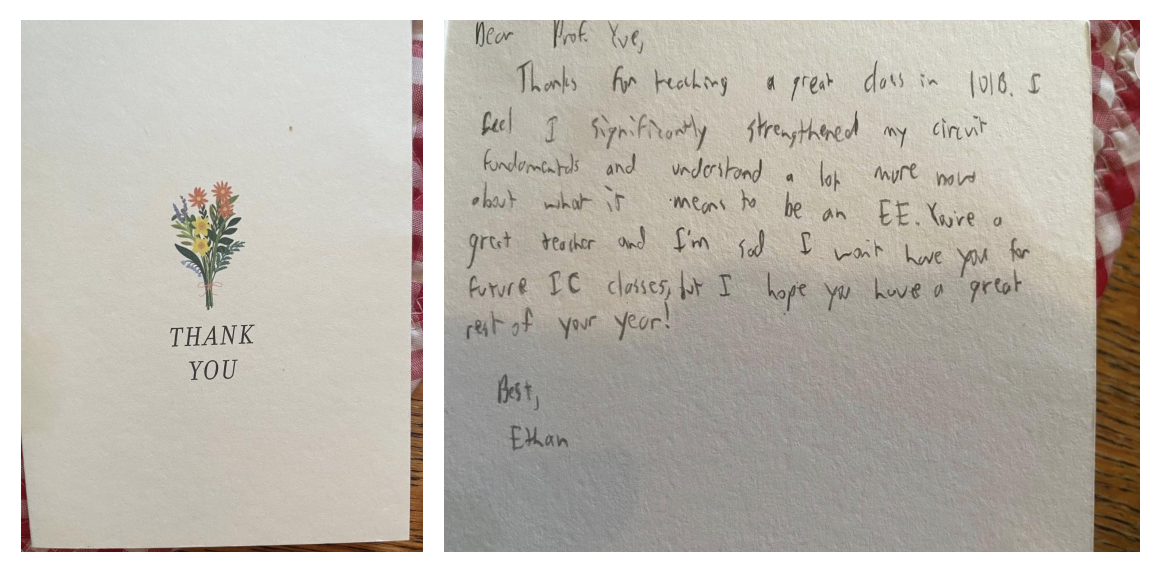 THANK
YOU
Dear Prof. Yue,
Thanks for teaching a great class in 101B. I
feel I significantly strengthened my circuit
fundamentals and understand a lot more now
about what it means to be an EE. You're a
great teacher and I'm sad I won't have you for
future IC classes, but I hope you have a great
rest of your year!
Best,
Ethan